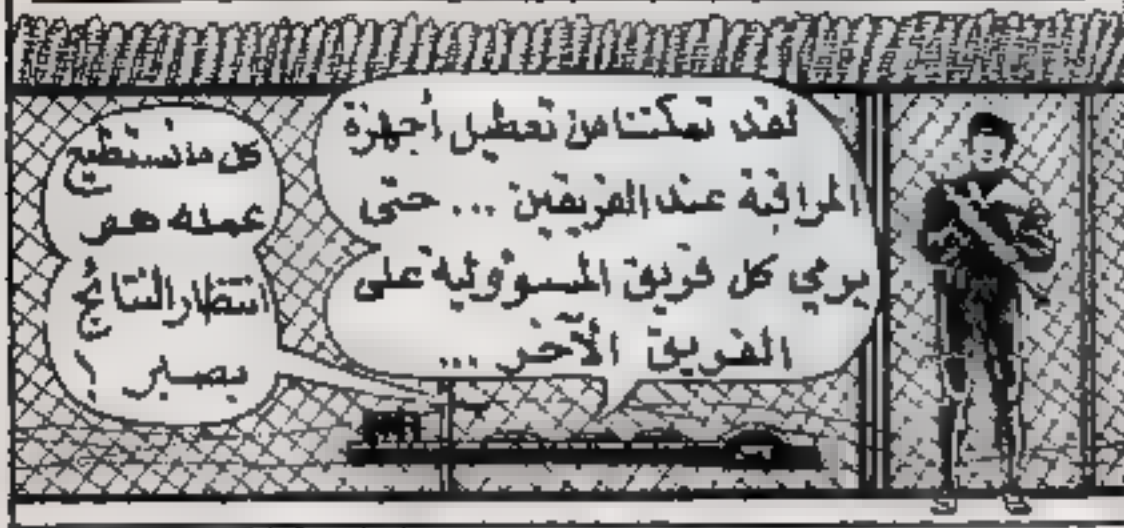 لقد تمكنا من تعطيل أجهزة
المراقبة عند الفريقين ... حتى
يرمي كل فريق المسؤولية على
الفريق الآخر ...
كل ما نستطيع
عمله هو
انتظار النتائج
بصبر !